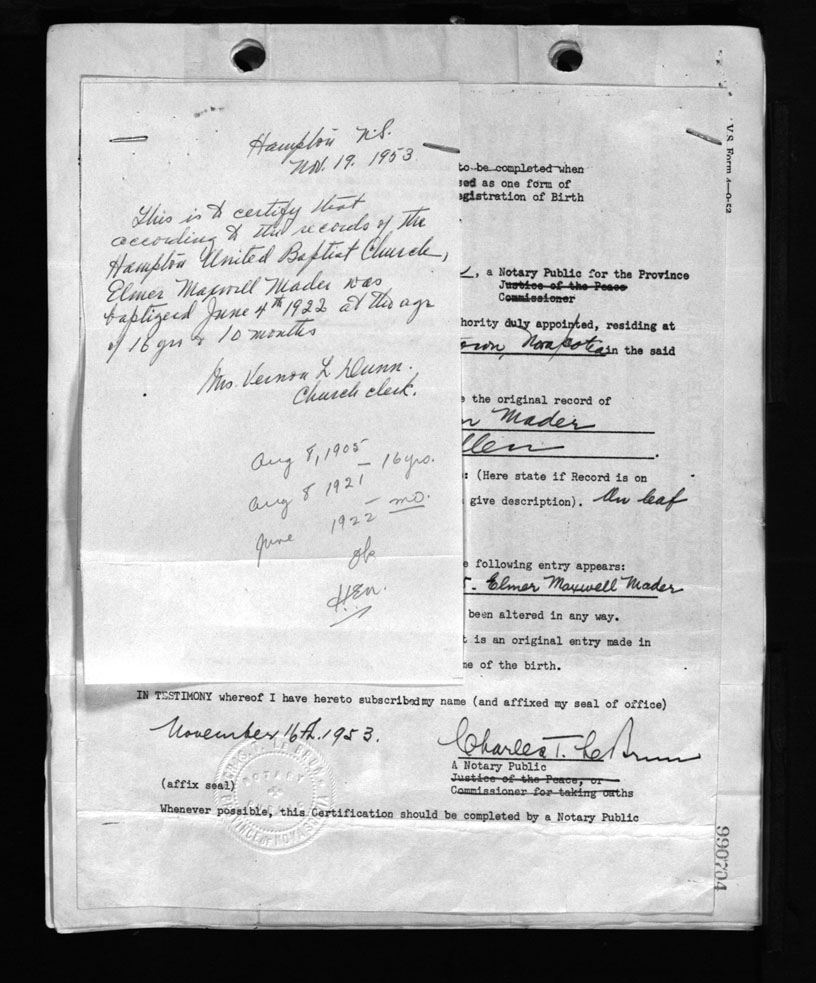 Hampton N.S.
Nov. 19. 1953.
This is to certify that
according to the records of the
Hampton United Baptist Church,
Elmer Maxwell Mader was
baptizerd June 4th 1922 at the age
of 16 yrs & 10 months
Mrs. Vernon L. Dunn.
Church clerk.
Aug 8, 1905
Aug 8 1921 - 16 yrs.
June 1922 - mo.
ok
V.S. Form 4-0-52
to be completed when
sed as one form of
egistration of Birth
, a Notary Public for the Province
Justice of the Peace
Commissioner
hority duly appointed, residing at
town, Nova Scotia in the said
e the original record of
n Mader
llen
: (Here state if Record is on
give description). On leaf
e following entry appears:
- Elmer Maxwell Mader
been altered in any way.
t is an original entry made in
me of the birth.
IN TESTIMONY whereof I have hereto subscribed my name (and affixed my seal of office)
November 16th. 1953.
Charles T. Le Brun
A Notary Public
Justice of the Peace, or
Commissioner for taking oaths
(affix seal)
NOTARY
PROVINCE OF NOVA SCOTIA
Whenever possible, this Certification should be completed by a Notary Public
990704